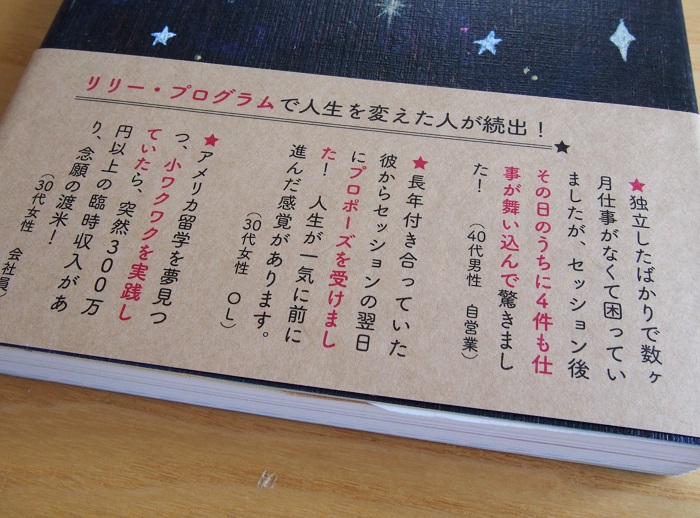 リリー・プログラムで人生を変えた人が続出！
★独立したばかりで数ヶ
月仕事がなくて困ってい
ましたが、セッション後
その日のうちに4件も仕
事が舞い込んで驚きまし
た！
（40代男性 自営業）
★長年付き合っていた
彼からセッションの翌日
にプロポーズを受けまし
た！ 人生が一気に前に
進んだ感覚があります。
（30代女性 OL）
★アメリカ留学を夢見つ
つ、小ワクワクを実践し
ていたら、突然300万
円以上の臨時収入があ
り、念願の渡米！
（30代女性 会社員）